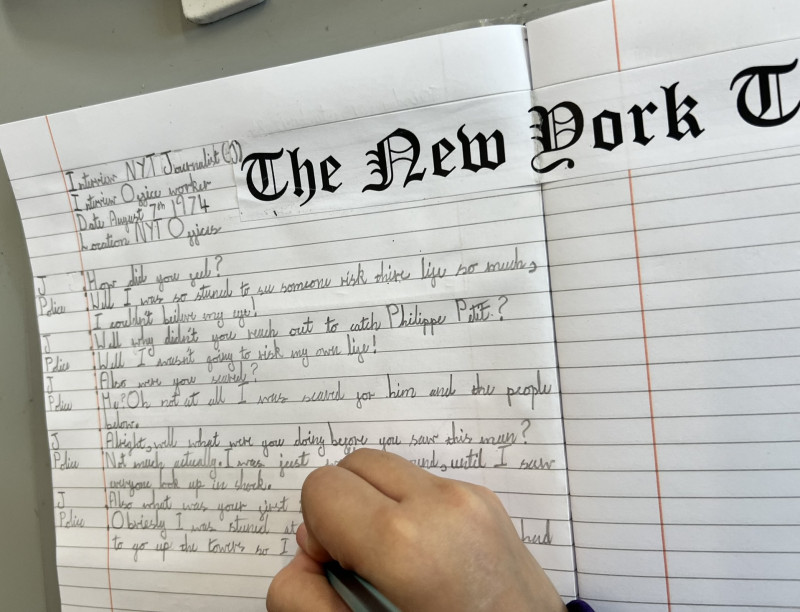 The New York T
Interview NYT Journalist (J)
Interview Office worker
Date August 7th 1974
Location NYT Offices
J How did you feel?
Police Well I was so stuned to see someone risk thire life so much,
I couldn't beileve my eye!
J Well why didn't you reach out to catch Philippe Petit?
Police Well I wasn't going to risk my own life!
J Also were you scared?
Police Me? Oh not at all I was scared for him and the people
below.
J Alright, well what were you doing before you saw this man?
Police Not much actually. I was just until I saw
everyone look up in shock.
J Also what was your first
Police Obviesly I was stuned at had
to go up the towers so I